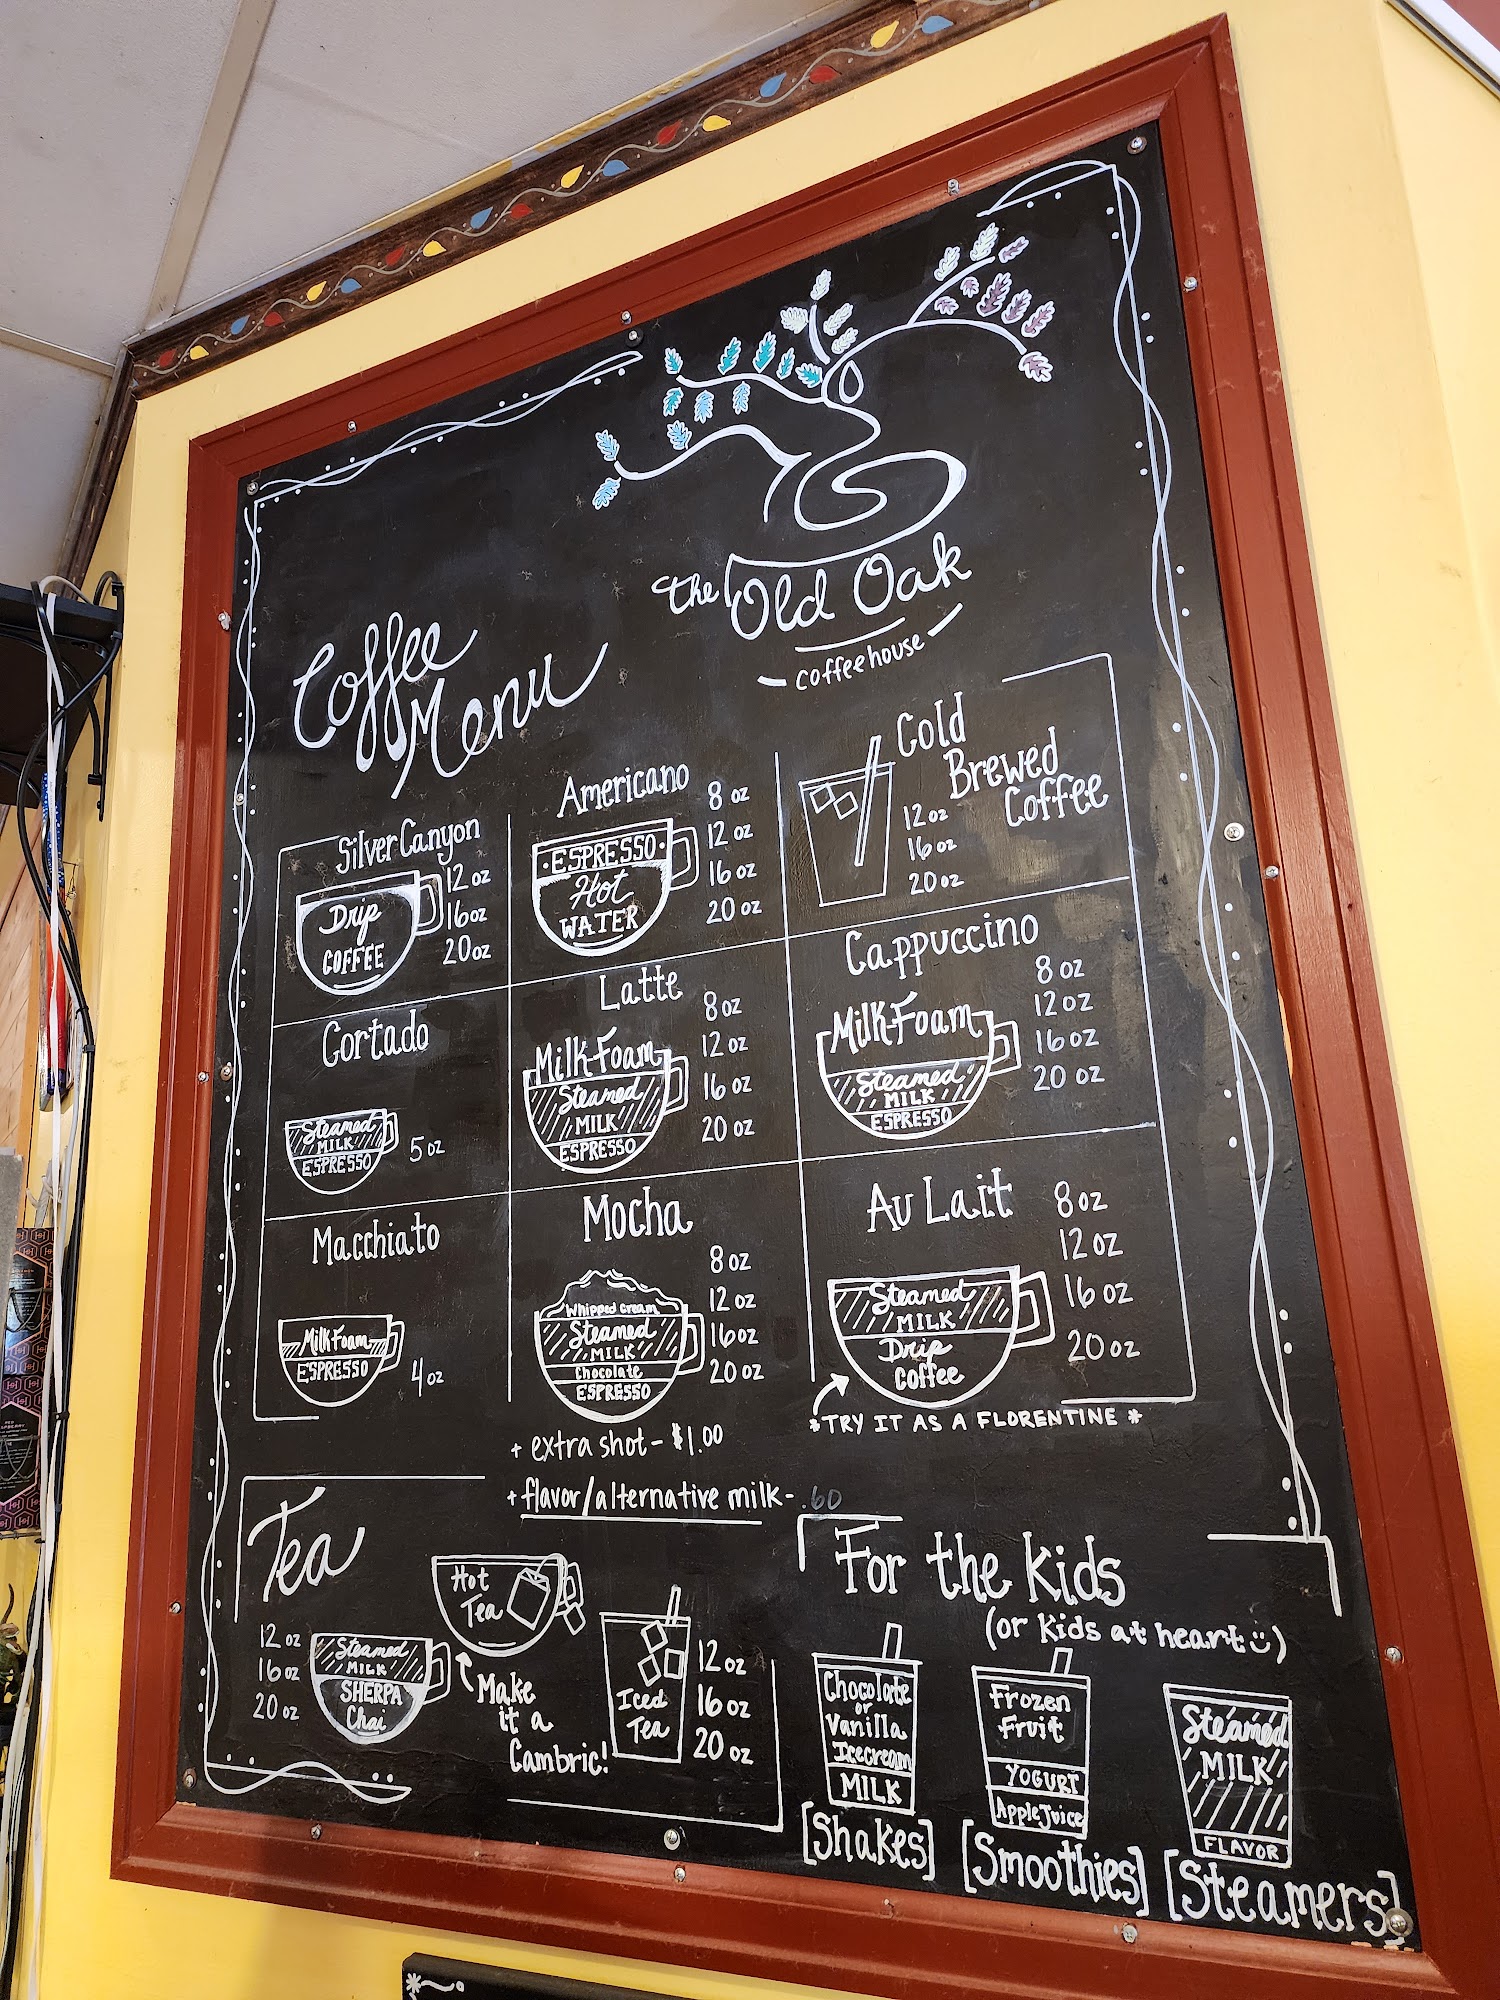 The Old Oak
coffeehouse
Coffee
Menu
Silver Canyon
Drip
COFFEE
12 oz
16 oz
20 oz
Americano
• ESPRESSO •
Hot
WATER
8 oz
12 oz
16 oz
20 oz
Cold
Brewed
Coffee
12 oz
16 oz
20 oz
Cortado
Steamed
MILK
ESPRESSO
5 oz
Latte
Milk Foam
Steamed
MILK
ESPRESSO
8 oz
12 oz
16 oz
20 oz
Cappuccino
Milk Foam
Steamed
MILK
ESPRESSO
8 oz
12 oz
16 oz
20 oz
Macchiato
Milk Foam
ESPRESSO
4 oz
Mocha
Whipped Cream
Steamed
MILK
Chocolate
ESPRESSO
8 oz
12 oz
16 oz
20 oz
Au Lait
Steamed
MILK
Drip
Coffee
8 oz
12 oz
16 oz
20 oz
*TRY IT AS A FLORENTINE *
+ extra shot - $1.00
+ flavor/alternative milk - .60
Tea
12 oz
16 oz
20 oz
Steamed
MILK
SHERPA
Chai
Hot
Tea
Make
it a
Cambric!
Iced
Tea
12 oz
16 oz
20 oz
For the Kids
(or Kids at heart :))
Chocolate
or
Vanilla
Icecream
MILK
[Shakes]
Frozen
Fruit
YOGURT
Apple Juice
[Smoothies]
Steamed
MILK
FLAVOR
[Steamers]